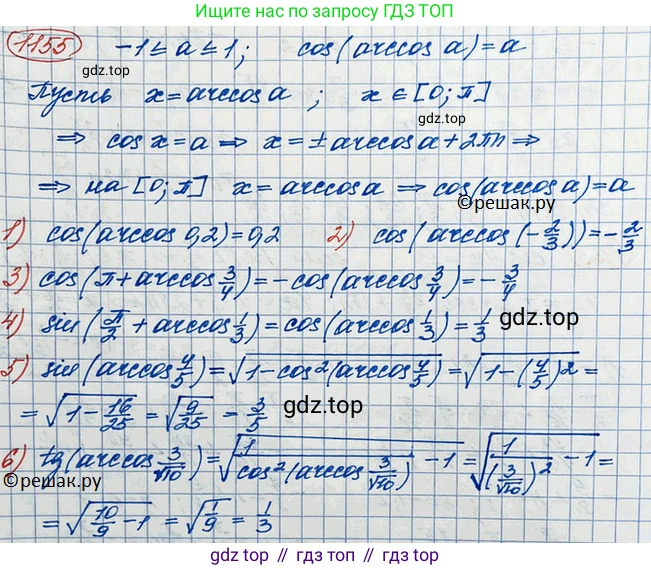 Ищите нас по запросу ГДЗ ТОП
1155 -1 ≤ a ≤ 1; cos(arccos a) = a
гдз.top
Пусть x = arccos a ; x ∈ [0; π]
⇒ cos x = a ⇒ x = ± arccos a + 2πn ⇒
⇒ на [0; π] x = arccos a ⇒ cos(arccos a) = a
©решак.ру
1) cos(arccos 0,2) = 0,2 2) cos(arccos(-2/3)) = -2/3
3) cos(π + arccos 3/4) = -cos(arccos 3/4) = -3/4
4) sin(π/2 + arccos 1/3) = cos(arccos 1/3) = 1/3
гдз.top
5) sin(arccos 4/5) = √(1 - cos²(arccos 4/5)) = √(1 - (4/5)²) =
= √(1 - 16/25) = √(9/25) = 3/5
гдз.top
6) tg(arccos 3/√10) = √(1/cos²(arccos 3/√10) - 1) = √(1/(3/√10)² - 1) =
©решак.ру
= √(10/9 - 1) = √(1/9) = 1/3
gdz.top // гдз.топ // гдз.top